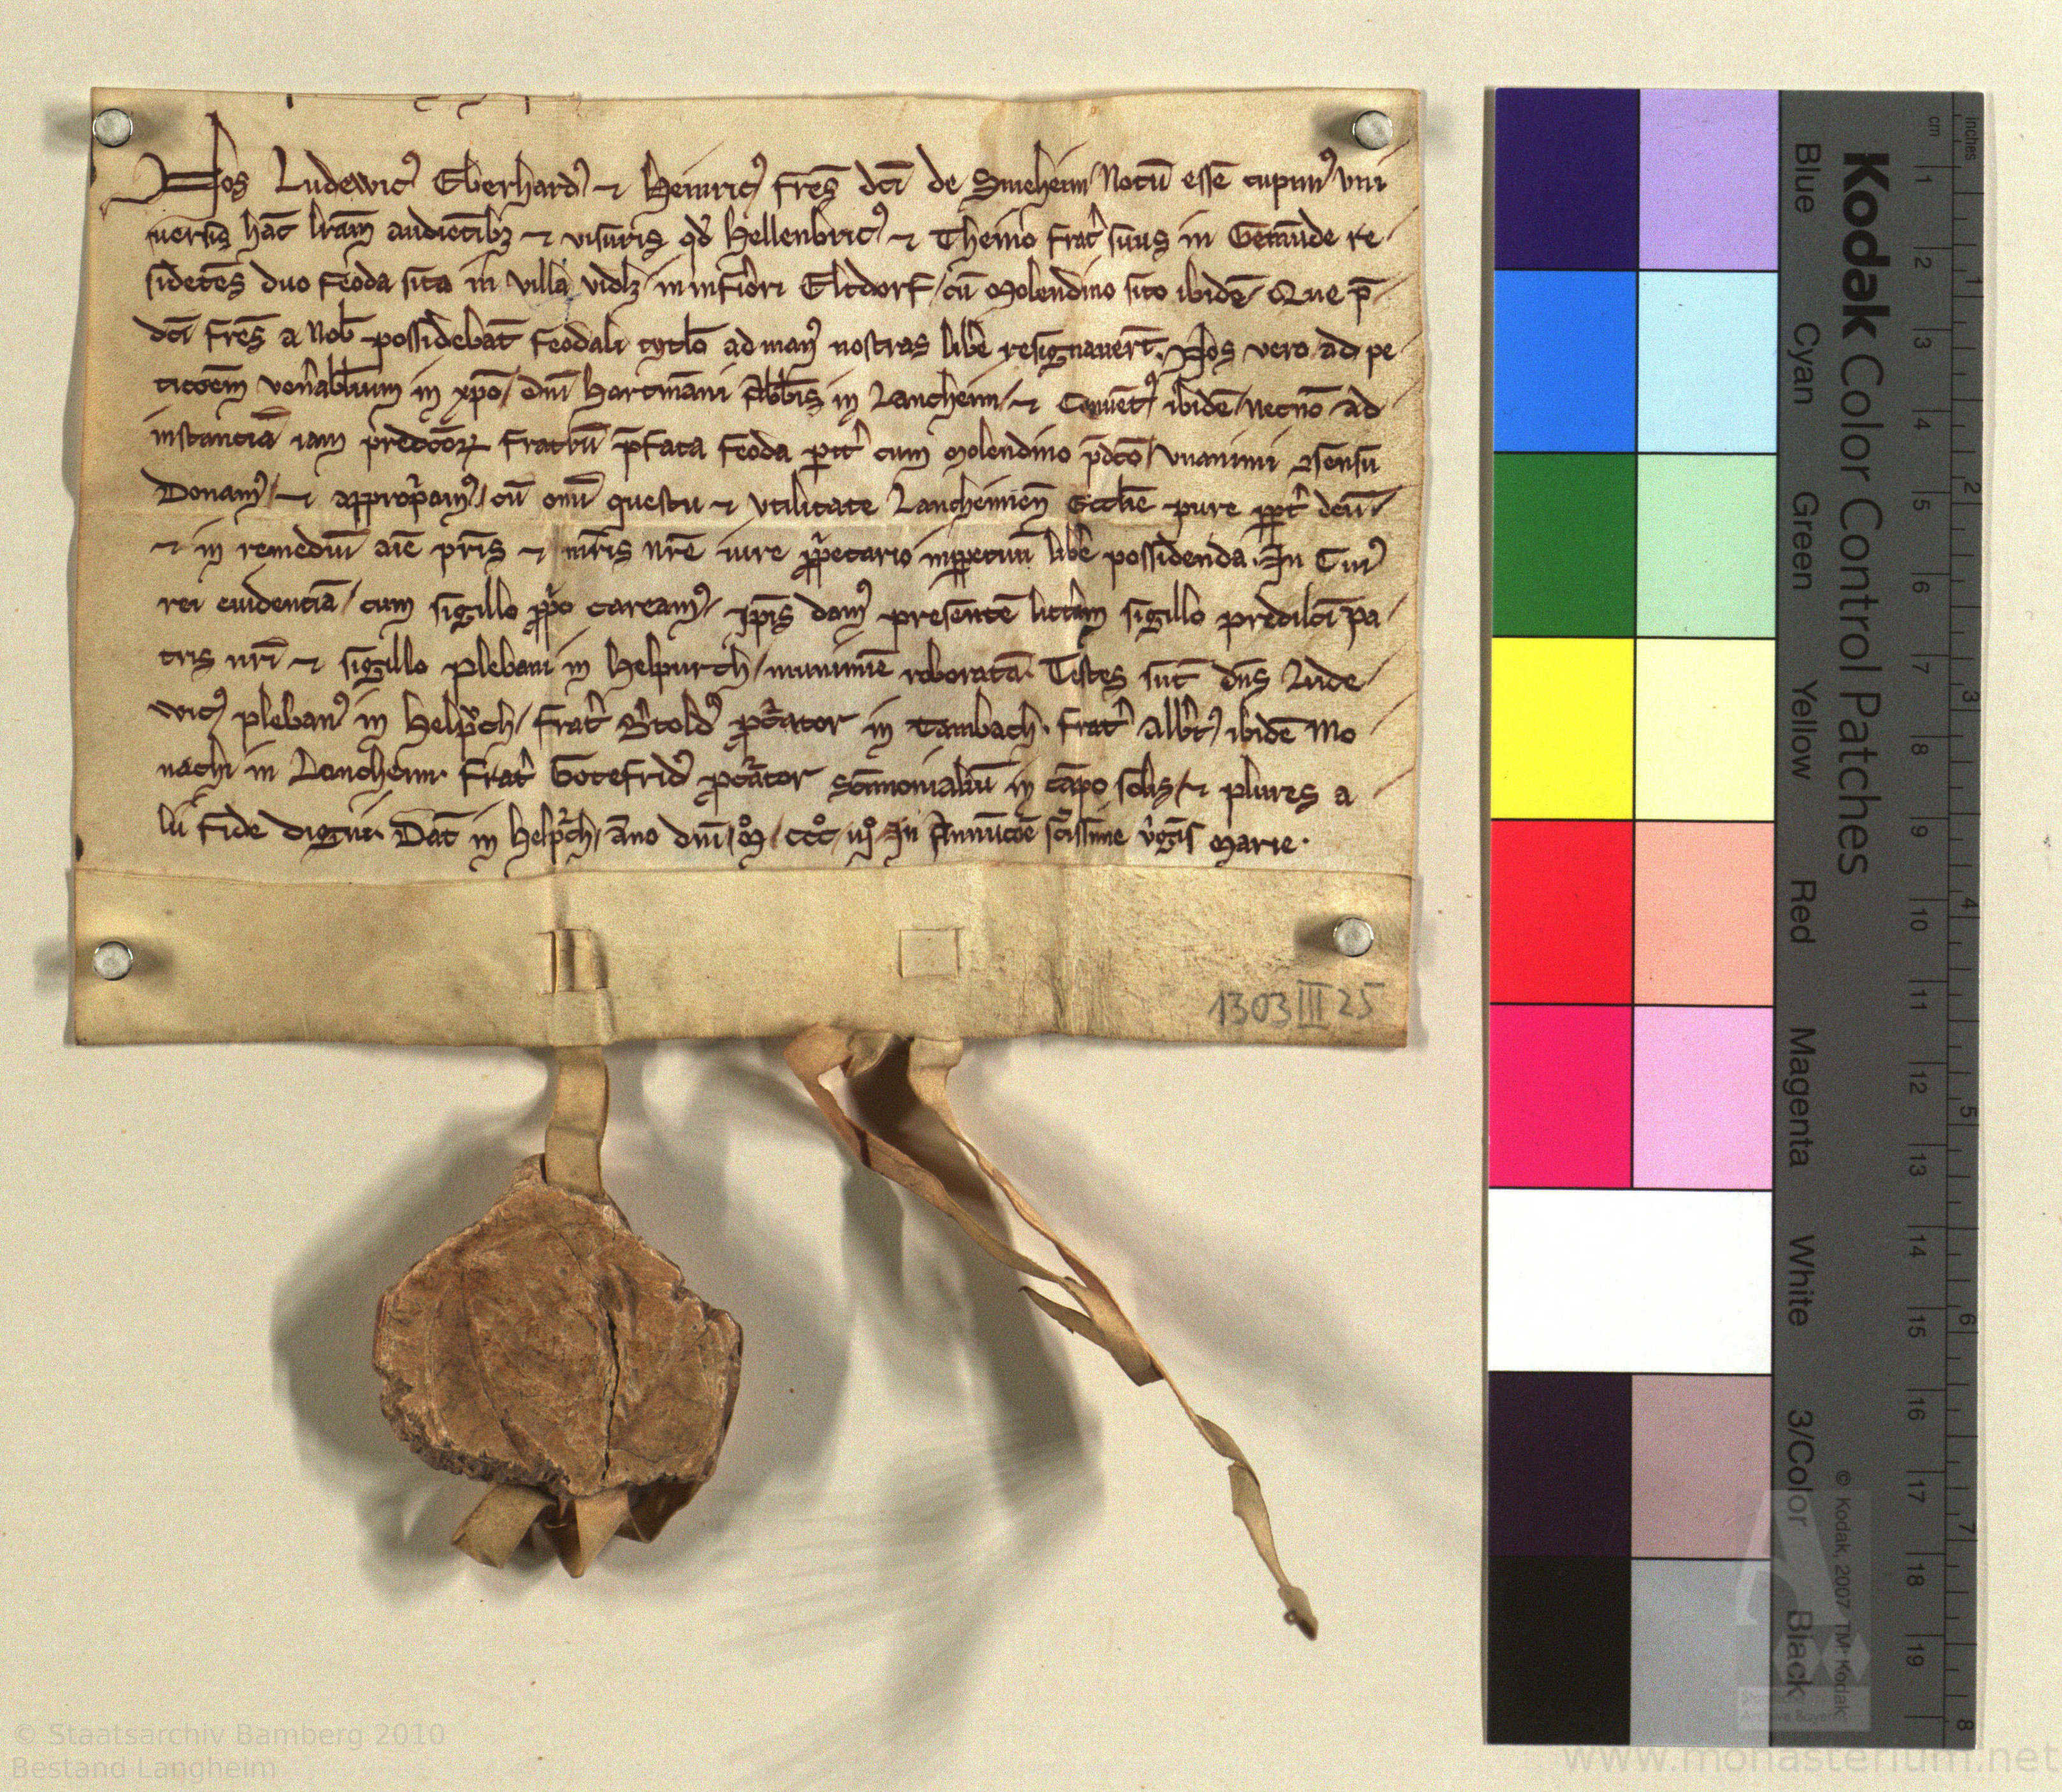 Nos Ludewic᷒ Eberhard᷒ ⁊ Heinric᷒ fres̄ dc̄i de Sineheim / Notū esse cupim᷒ vni
uersis hāc lr̄am audiētib᷒ ⁊ visuris qd̛ Hellenbric᷒ ⁊ Theino frat̛ suus in Gemūde re-
sidētes duo feoda sita in villa vidlꝫ in inf̛iori Eltdorf / cū Molendino sito ibidē / Que p̄-
dc̄i fres̄ a nob̄ possidebāt feodali tytlo̅ ad man᷒ nostras lib̛e resignauerт̄. Nos vero ad pe
ticōem ven̛abilium in xp̄o / dn̄i Hartmāni Abbīs in Lancheim / ⁊ Cōuēt᷒ ibidē / necnō ad
instanciā iam predc̄oꝝ fratrū p̄fata feoda pit̛ cum Molendino p̄dc̄o / vnanimi ꝯsensu
Donam᷒ / ⁊ app̄ropam᷒ / cū om̄i questu ⁊ vtilitate Lancheimen̄ Eccl̄ie pure ꝓpt̛ deū /
⁊ in remediū aīe pr̄is ⁊ mr̄is nr̄e iure ꝓp̛etario inꝑpetuū lib̛e possidenda. In Cui᷒
rei euidenciā / cum sigillo ꝓp̛o caream᷒ / Ip̄is dam᷒ presentē litt̛am sigillo predilc̄i pa /
tris nr̄i ⁊ sigillo plebani in Helpurch / munimīe roboratā. Testes sūt dn̄s Lude
wic᷒ pleban᷒ in Helpͮch / frat̛ B̛told᷒ ꝓc̛ator in Tambach. frat̛ Alb̛t᷒ ibidē Mo
nachi in Lancheim. Frat̛ Gotefrid᷒ ꝓc̛ator sc̄imonialiū in cāpo solis / ⁊ plures a
lii fide digni. Dāt in Helpͮch / āno dn̄i / Mͦ / cccͦ / iijͦ In Annūcōe sc̄issime v̛gīs Marie.
1303 III 25
Kodak Color Control Patches
Blue
Cyan
Green
Yellow
Red
Magenta
White
3/Color
Black
© Kodak, 2007 TM: Kodak
cm
1
2
3
4
5
6
7
8
9
10
11
12
13
14
15
16
17
18
19
inches
1
2
3
4
5
6
7
8
© Staatsarchiv Bamberg 2010
Bestand Langheim
www.monasterium.net